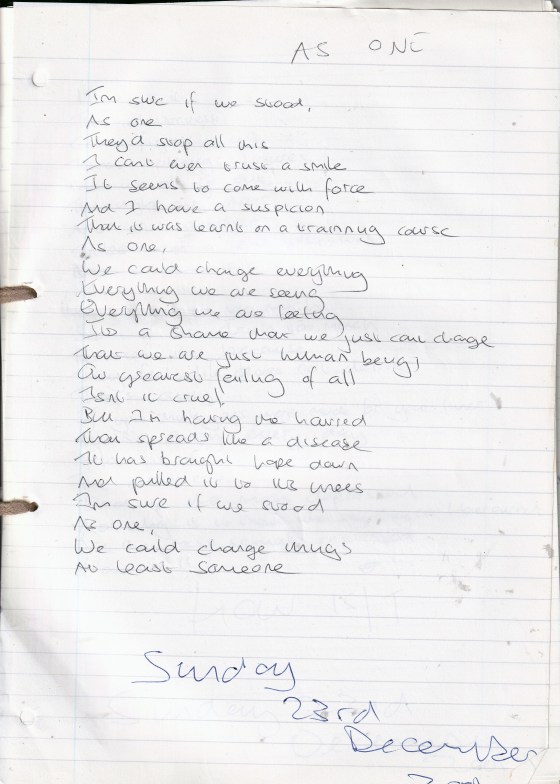 AS ONE
I'm sure if we stood,
As one
They'd stop all this
I can't even trust a smile
It seems to come with force
And I have a suspicion
That it was learnt on a training course
As one,
We could change everything
Everything we are seeing
Everything we are feeling
It's a shame that we just can change
That we are just human beings
Our greatest failing of all
Isn't it cruel
But I'm hating the hatred
That spreads like a disease
It has brought hope down
And pulled it to its knees
I'm sure if we stood
As one,
We could change things
At least someone
Sunday
23rd
December